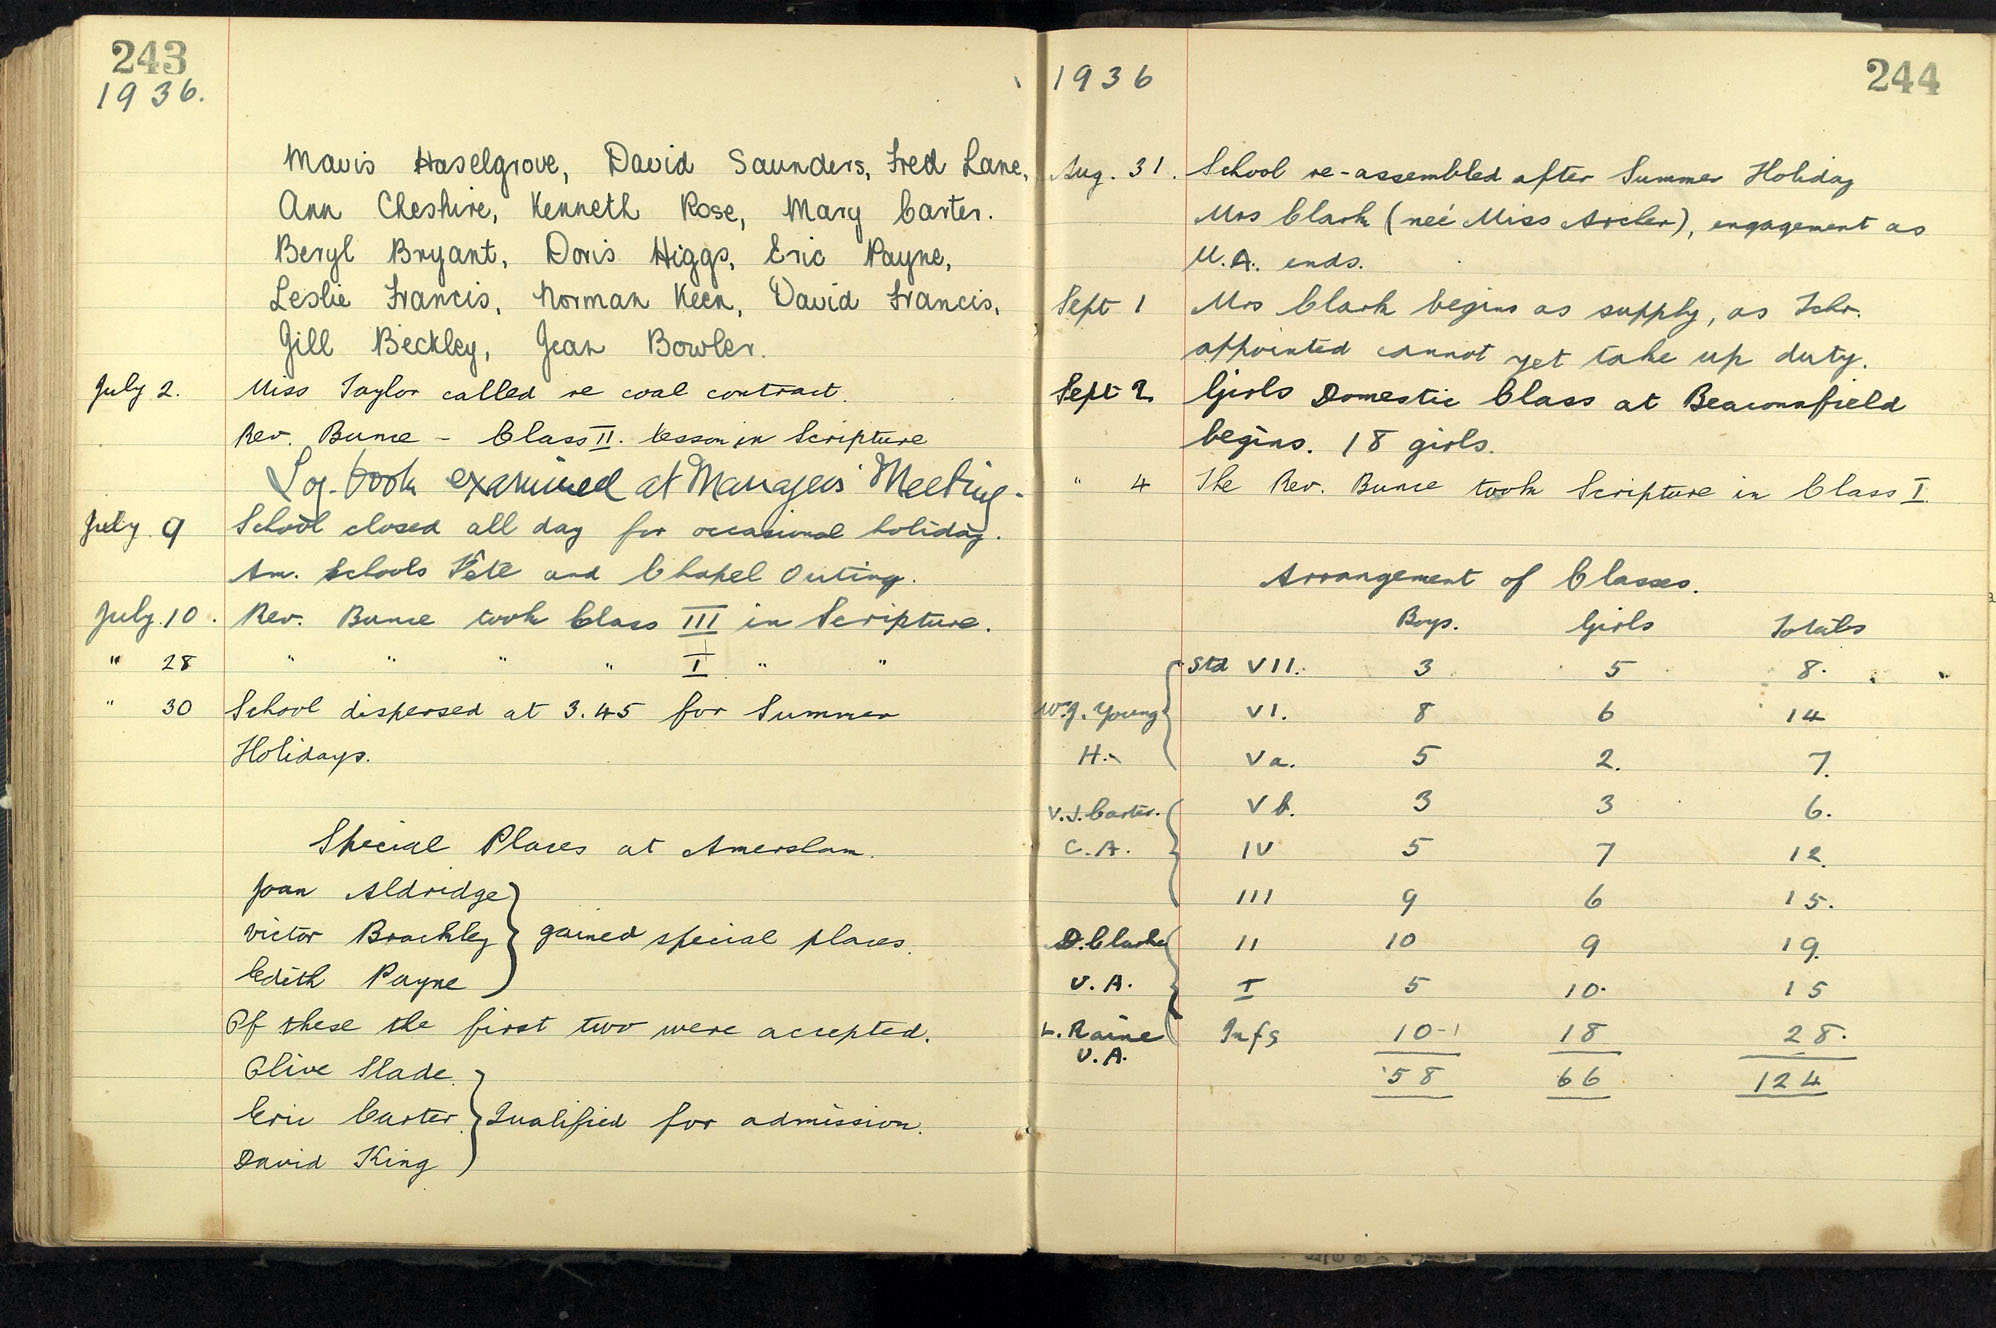 243
1936.
Mavis Haselgrove, David Saunders, Fred Lane,
Ann Cheshire, Kenneth Rose, Mary Carter.
Beryl Bryant, Doris Higgs, Eric Payne,
Leslie Francis, Norman Keen, David Francis,
Gill Beckley, Jean Bowler.
July 2. Miss Taylor called re coal contract.
Rev. Bunce - Class II. lesson in Scripture
Log-book examined at Managers' Meeting-
July 9 School closed all day for occasional holiday.
Am. Schools Fete and Chapel Outing.
July. 10. Rev. Bunce took Class III in Scripture.
" 28 " " " " I " "
" 30 School dispersed at 3.45 for Summer
Holidays.
Special Places at Amersham.
Joan Aldridge
Victor Brackley } gained special places.
Edith Payne
Of these the first two were accepted.
Olive Slade
Eric Carter } Qualified for admission.
David King
1936
244
Aug. 31. School re-assembled after Summer Holiday
Mrs Clark (neé Miss Archer), engagement as
U.A. ends.
Sept 1 Mrs Clark begins as supply, as Tchr.
appointed cannot yet take up duty.
Sept 2 Girls Domestic Class at Beaconsfield
begins. 18 girls.
" 4 The Rev. Bunce took Scripture in Class I.
Arrangement of Classes.
Boys. Girls Totals
Std VII. 3 5 8.
W.J. Young VI. 8 6 14
H. Va. 5 2. 7.
V.J. Carter. Vb. 3 3 6.
C.A. IV 5 7 12.
III 9 6 15.
D. Clarke II 10 9 19.
U.A. I 5 10. 15
L. Raine Infs 10-1 18 28.
U.A.
58 66 124